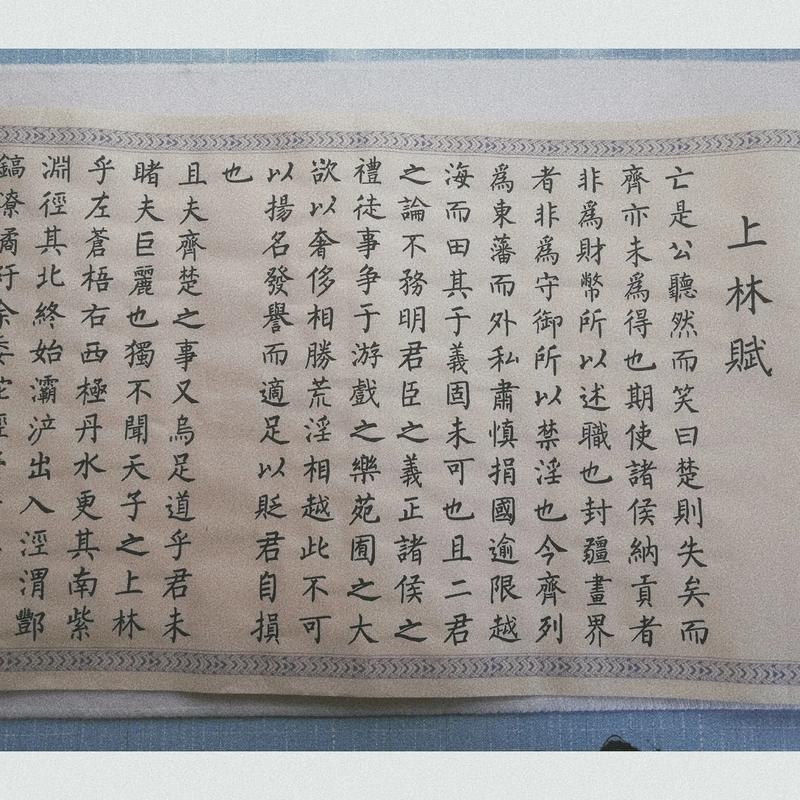 上林賦
亡是公聽然而笑曰楚則失矣而
齊亦未爲得也期使諸侯納貢者
非爲財幣所以述職也封疆畫界
者非爲守御所以禁淫也今齊列
爲東藩而外私肅慎捐國逾限越
海而田其于義固未可也且二君
之論不務明君臣之義正諸侯之
禮徒事争于游戲之樂苑囿之大
欲以奢侈相勝荒淫相越此不可
以揚名發譽而適足以貶君自損
也
且夫齊楚之事又烏足道乎君未
睹夫巨麗也獨不聞天子之上林
乎左蒼梧右西極丹水更其南紫
淵徑其北終始灞浐出入涇渭酆
鎬潦潏紆余委蛇經